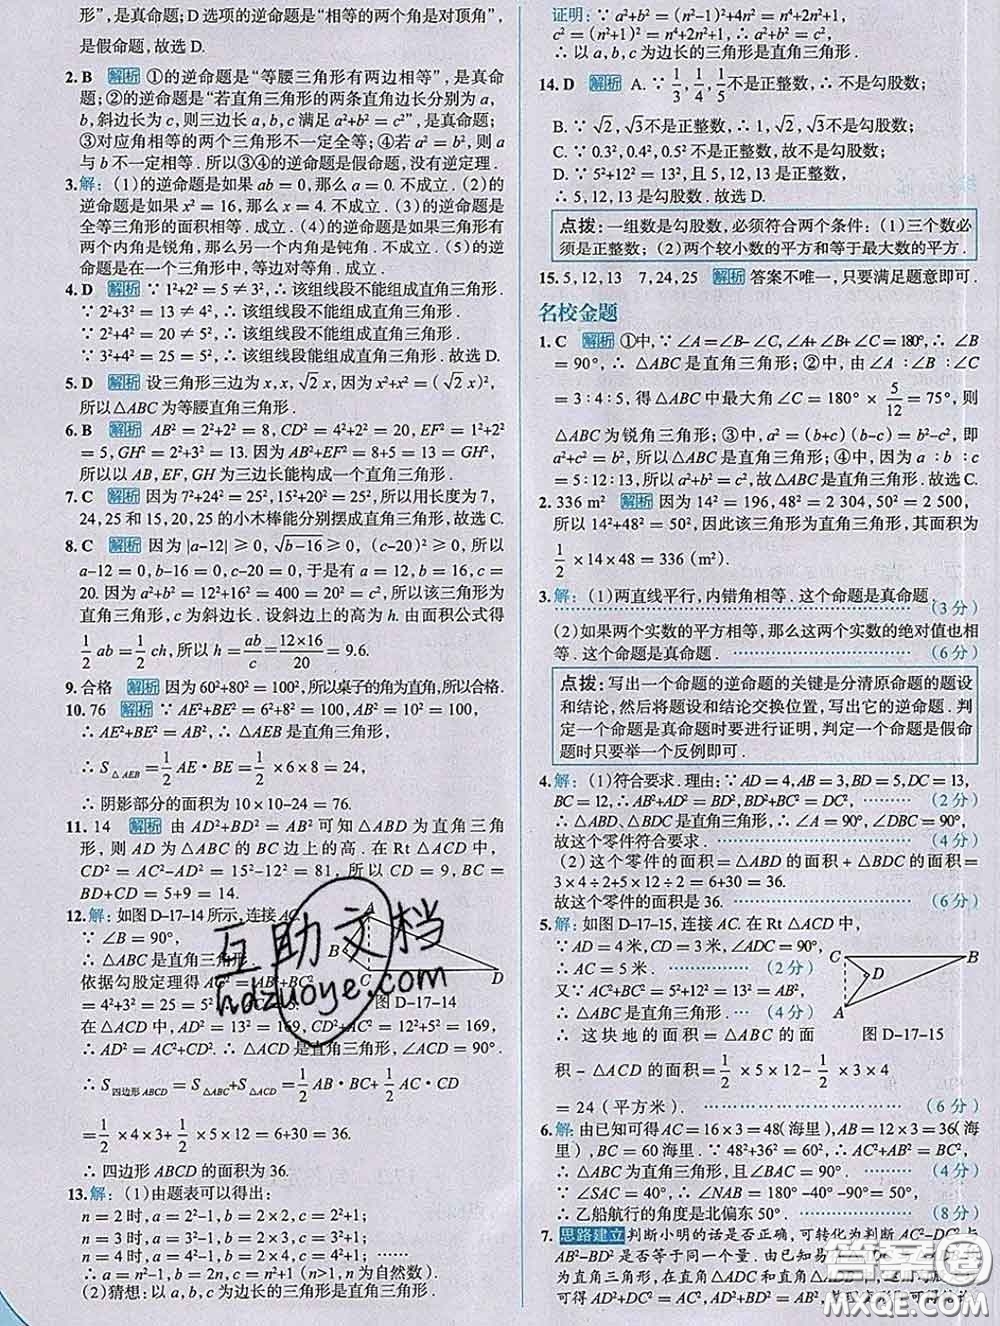 形”，是真命题；D 选项的逆命题是“相等的两个角是对顶角”，
是假命题，故选 D.
2. B 解析 ①的逆命题是“等腰三角形有两边相等”，是真命
题；②的逆命题是“若直角三角形的两条直角边长分别为 a，
b，斜边长为 c，则三边长满足 a²+b²=c²”，是真命题；
③对应角相等的两个三角形不一定全等；④若 a²=b²，则 a
与 b 不一定相等. 所以③④的逆命题是假命题，没有逆定理.
3. 解：(1)的逆命题是如果 ab=0，那么 a=0. 不成立. (2)的
逆命题是如果 x²=16，那么 x=4. 不成立. (3)的逆命题是
全等三角形的面积相等. 成立. (4)的逆命题是如果三角形有
两个内角是锐角，那么另一个内角是钝角. 不成立. (5)的逆
命题是在一个三角形中，等边对等角. 成立.
4. D 解析 ∵ 1²+2²=5≠3²，∴ 该组线段不能组成直角三角形.
∵ 2²+3²=13≠4²，∴ 该组线段不能组成直角三角形.
∵ 2²+4²=20≠5²，∴ 该组线段不能组成直角三角形.
∵ 3²+4²=25=5²，∴ 该组线段能组成直角三角形. 故选 D.
5. D 解析 设三角形三边为 x，x，√2 x，因为 x²+x²=(√2 x)²，
所以△ABC 为等腰直角三角形.
6. B 解析 AB²=2²+2²=8，CD²=4²+2²=20，EF²=1²+2²
=5，GH²=2²+3²=13. 因为 AB²+EF²=8+5=13=GH²，
所以以 AB，EF，GH 为三边长能构成一个直角三角形.
7. C 解析 因为 7²+24²=25²，15²+20²=25²，所以用长度为 7，
24，25 和 15，20，25 的小木棒能分别摆成直角三角形，故选 C.
8. C 解析 因为 |a-12|≥0，√b-16≥0，(c-20)²≥0，所以
a-12=0，b-16=0，c-20=0，于是有 a=12，b=16，c=
20. 因为 a²+b²=12²+16²=400=20²=c²，所以该三角形为
直角三角形，c 为斜边长. 设斜边上的高为 h. 由面积公式得
1/2 ab=1/2 ch，所以 h=ab/c=12×16/20=9.6.
9. 合格 解析 因为 60²+80²=100²，所以桌子的角为直角，所以合格.
10. 76 解析 ∵ AE²+BE²=6²+8²=100，AB²=10²=100，
∴ AE²+BE²=AB²，∴ △AEB 是直角三角形，
∴ S△AEB=1/2 AE·BE=1/2×6×8=24，
∴ 阴影部分的面积为 10×10-24=76.
11. 14 解析 由 AD²+BD²=AB² 可知 △ABD 为直角三角
形，则 AD 为 △ABC 的 BC 边上的高. 在 Rt△ACD 中，
CD²=AC²-AD²=15²-12²=81，所以 CD=9，BC=
BD+CD=5+9=14.
12. 解：如图 D-17-14 所示，连接 AC.
∵ ∠B=90°，
∴ △ABC 为直角三角形，
依据勾股定理得 AC²=AB²+BC²
=4²+3²=25=5²，∴ AC=5. 图 D-17-14
在 △ACD 中，AD²=13²=169，CD²+AC²=12²+5²=169，
∴ AD²=AC²+CD². ∴ △ACD 是直角三角形，∠ACD=90°.
∴ S四边形ABCD=S△ABC+S△ACD=1/2 AB·BC+1/2 AC·CD
=1/2×4×3+1/2×5×12=6+30=36.
∴ 四边形 ABCD 的面积为 36.
13. 解：(1)由题表可以得出：
n=2 时，a=2²-1，b=2×2，c=2²+1；
n=3 时，a=3²-1，b=2×3，c=3²+1；
n=4 时，a=4²-1，b=2×4，c=4²+1；
∴ a=n²-1，b=2n，c=n²+1（n>1，n 为自然数）.
(2)猜想：以 a，b，c 为边长的三角形是直角三角形.
证明：∵ a²+b²=(n²-1)²+4n²=n⁴+2n²+1，
c²=(n²+1)²=n⁴+2n²+1，∴ a²+b²=c²，
∴ 以 a，b，c 为边长的三角形是直角三角形.
14. D 解析 A. ∵ 1/3，1/4，1/5 不是正整数，∴ 不是勾股数；
B. ∵ √2，√3 不是正整数，∴ 1，√2，√3 不是勾股数；
C. ∵ 0.3²，0.4²，0.5² 不是正整数，故不是勾股数；
D. ∵ 5²+12²=13²，且 5，12，13 是正整数，
∴ 5，12，13 是勾股数. 故选 D.
点拨：一组数是勾股数，必须符合两个条件：(1)三个数必
须是正整数；(2)两个较小数的平方和等于最大数的平方.
15. 5，12，13 7，24，25 解析 答案不唯一，只要满足题意即可.
名校金题
1. C 解析 ①中，∵ ∠A=∠B-∠C，∠A+∠B+∠C=180°，∴ ∠B
=90°，∴ △ABC 是直角三角形；②中，由 ∠A：∠B：∠C
=3：4：5，得 △ABC 中最大角 ∠C=180°×5/12=75°，则
△ABC 为锐角三角形；③中，a²=(b+c)(b-c)=b²-c²，即
a²+c²=b²，故 △ABC 是直角三角形；④中，因为 a：b：c
=5：12：13，所以 a²+b²=c²，故 △ABC 是直角三角形. 故选 C.
2. 336 m² 解析 因为 14²=196，48²=2 304，50²=2 500，
所以 14²+48²=50²，因此该三角形为直角三角形，其面积为
1/2×14×48=336（m²）.
3. 解：(1)两直线平行，内错角相等. 这个命题是真命题.
（3 分）
(2)如果两个实数的平方相等，那么这两个实数的绝对值也相
等. 这个命题是真命题. （6 分）
点拨：写出一个命题的逆命题的关键是分清原命题的题设
和结论，然后将题设和结论交换位置，写出它的逆命题. 判
定一个命题是真命题时要进行证明，判定一个命题是假命
题时只要举一个反例即可.
4. 解：(1)符合要求. 理由：∵ AD=4，AB=3，BD=5，DC=13，
BC=12，∴ AB²+AD²=BD²，BD²+BC²=DC²，（2 分）
∴ △ABD、△BDC 是直角三角形，∴ ∠A=90°，∠DBC=90°，
故这个零件符合要求. （4 分）
(2)这个零件的面积=△ABD 的面积+△BDC 的面积=
3×4÷2+5×12÷2=6+30=36.
故这个零件的面积是 36. （6 分）
5. 解：如图 D-17-15，连接 AC. 在 Rt△ACD 中，
∵ AD=4 米，CD=3 米，∠ADC=90°，
∴ AC=5 米. （2 分）
又∵ AC²+BC²=5²+12²=13²=AB²，
∴ △ABC 是直角三角形. （4 分）
∴ 这块地的面积=△ABC 的面 图 D-17-15
积-△ACD 的面积=1/2×5×12-1/2×3×4
=24（平方米）. （6 分）
6. 解：由已知可得 AC=16×3=48（海里），AB=12×3=36（海
里），BC=60 海里. ∵ 48²+36²=60²，∴ AC²+AB²=BC²，
∴ △ABC 为直角三角形，且 ∠BAC=90°. （4 分）
∵ ∠SAC=40°，∴ ∠NAB=180°-90°-40°=50°，
∴ 乙船航行的角度是北偏东 50°. （8 分）
7. 思路建立 判断小明的话是否正确，可转化为判断 AC²-DC² 与
AB²-BD² 是否等于同一个量. 由已知易
为直角三角形，在直角△ADC 和直角△ADB
可得 AD²+DC²=AC²，AD²+BD²=AB²，
互助文档
hdzuoye.com
答案圈
MXQE.COM